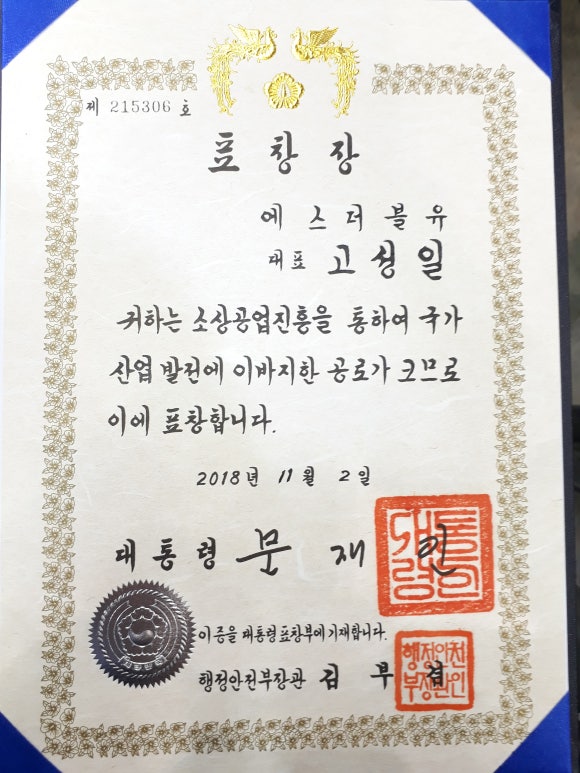 제 215306 호
표창장
에스더블유
대표 고성일
귀하는 소상공업진흥을 통하여 국가
산업 발전에 이바지한 공로가 크므로
이에 표창합니다.
2018년 11월 2일
대통령 문재인
대통령의인
이 증을 대통령표창부에 기재합니다.
행정안전부장관 김부겸
행정안전부장관인